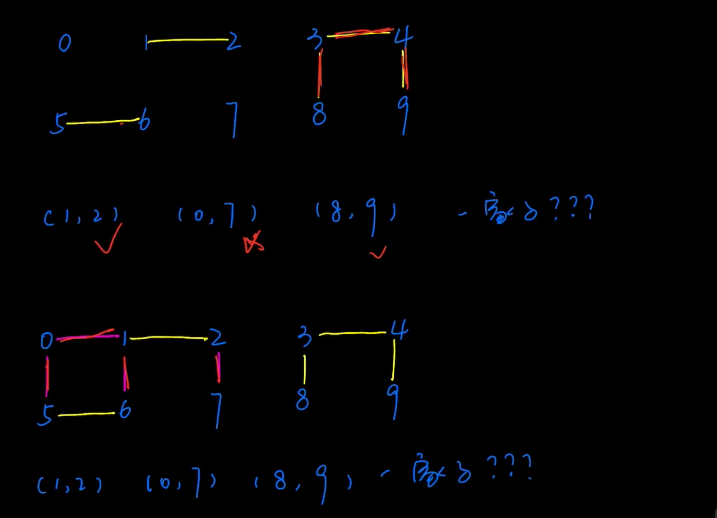 0 1 2 3 4
5 6 7 8 9
(1,2) (0,7) (8,9) - ???
0 1 2 3 4
5 6 7 8 9
(1,2) (0,7) (8,9) - ???